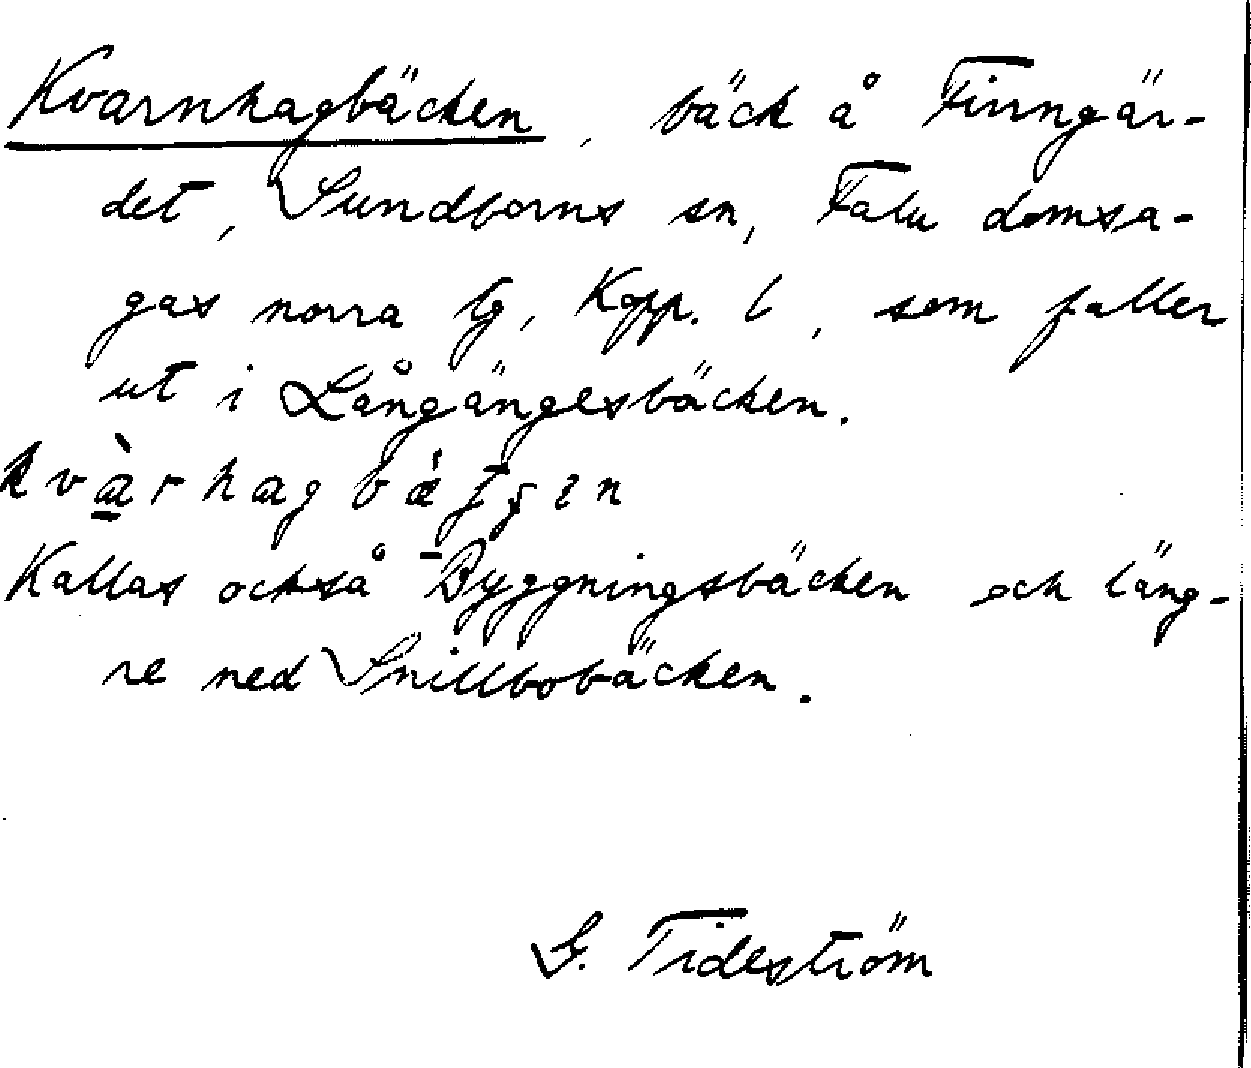 Kvarnhagbäcken, bäck å Finngär-
det, Sundborns sn, Falu domsa-
gas norra tg, Kopp. l, som faller
ut i Långängesbäcken.
Kallas också Byggningsbäcken och läng-
re ned Snillbobäcken.
G. Tideström